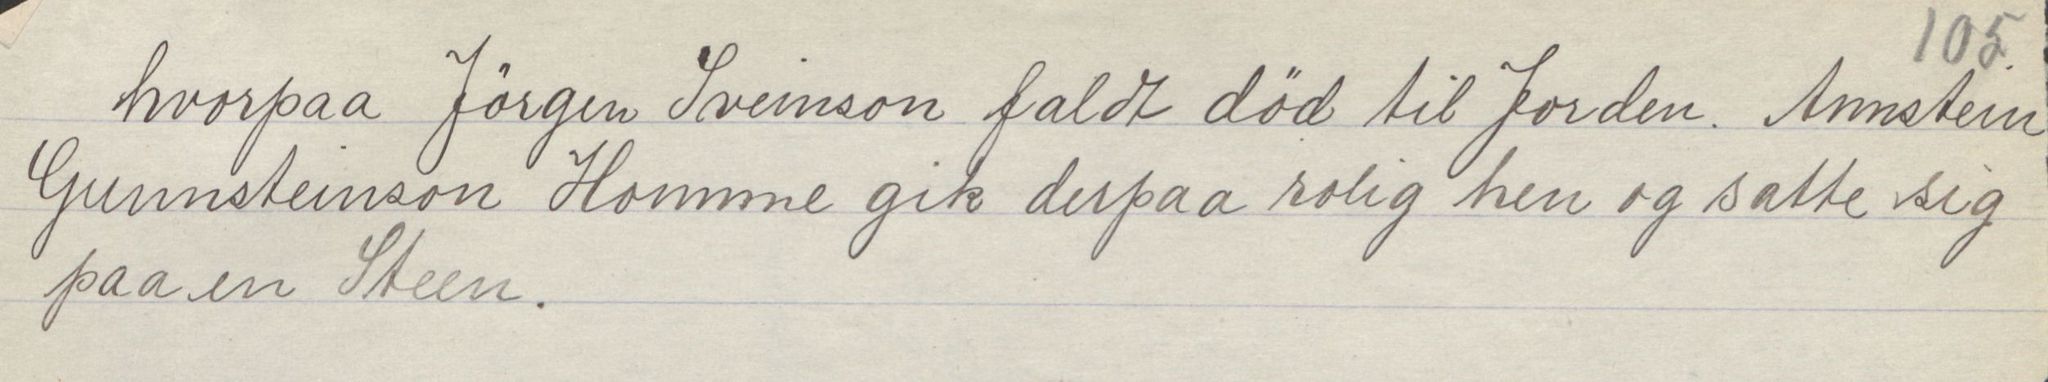 105.
hvorpaa Jörgen Sveinson faldt död til Jorden. Annstein
Gunnsteinson Homme gik derpaa rolig hen og satte sig
paa en Steen.